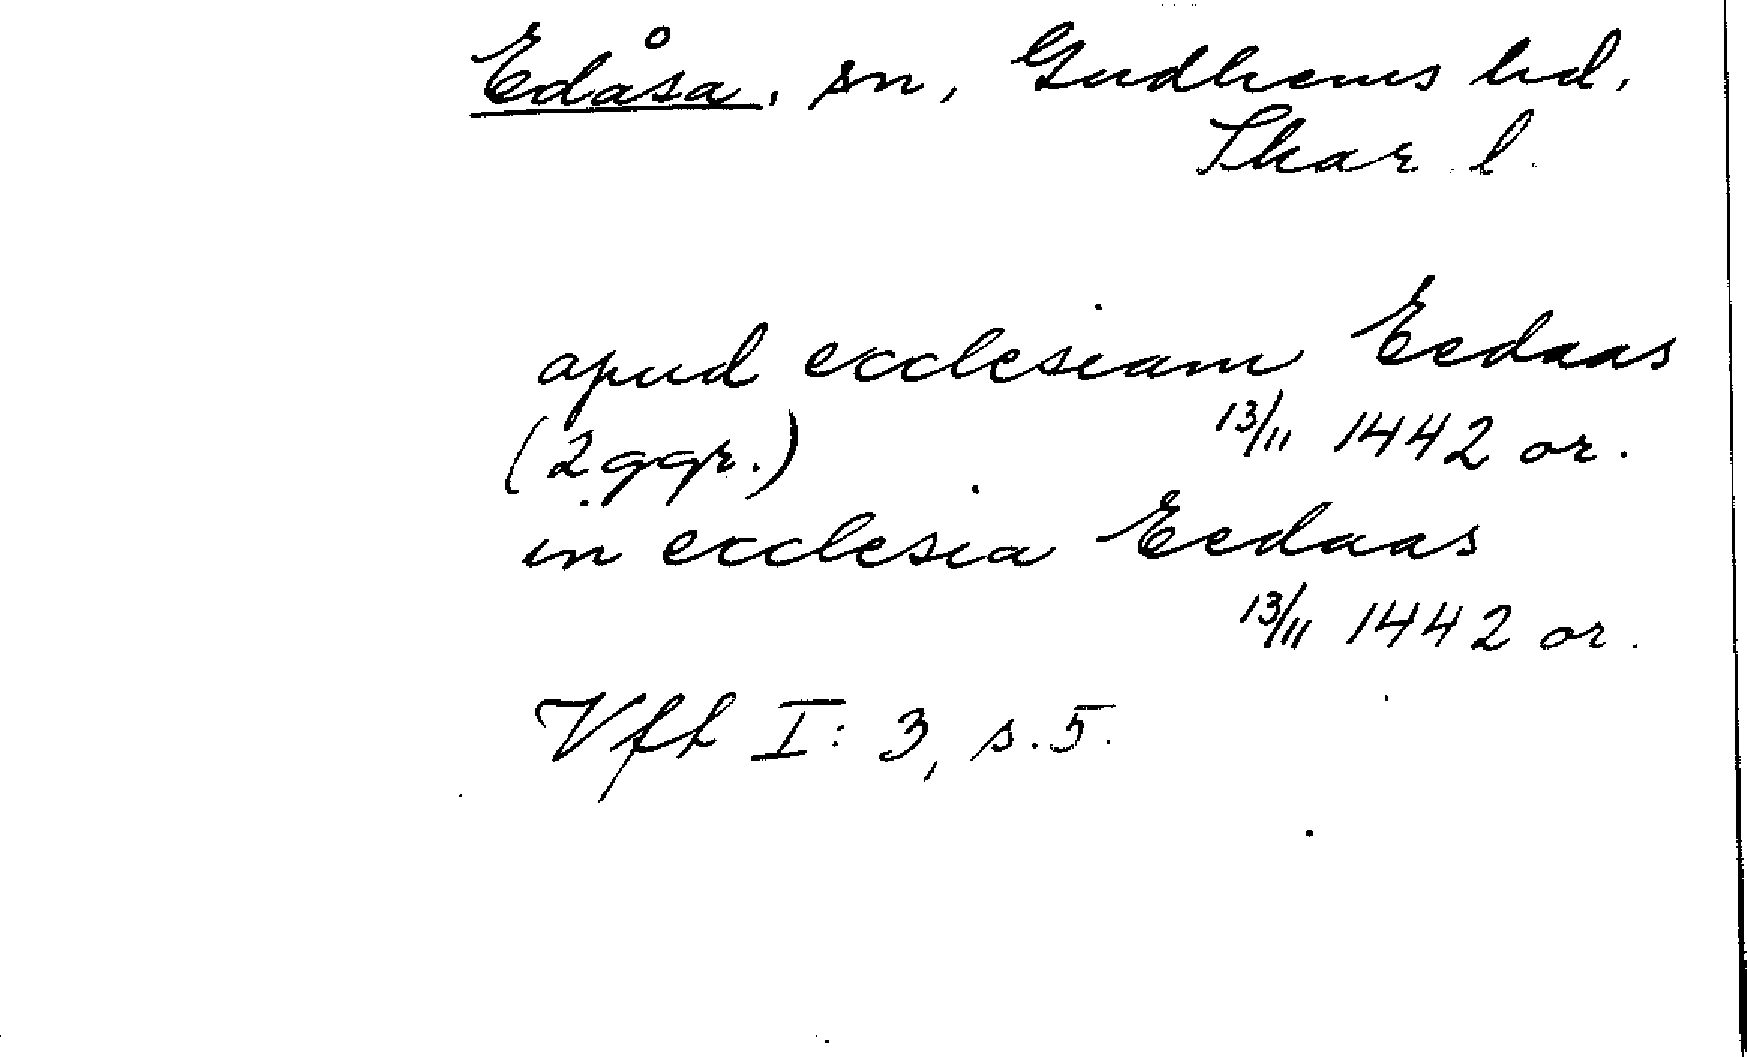 Edåsa, sn, Gudhems hd,
Skar. l.
apud ecclesiam Eedaas
(2 ggr.) 13/11 1442 or.
in ecclesia Eedaas
13/11 1442 or.
Vfh I: 3, s. 5.